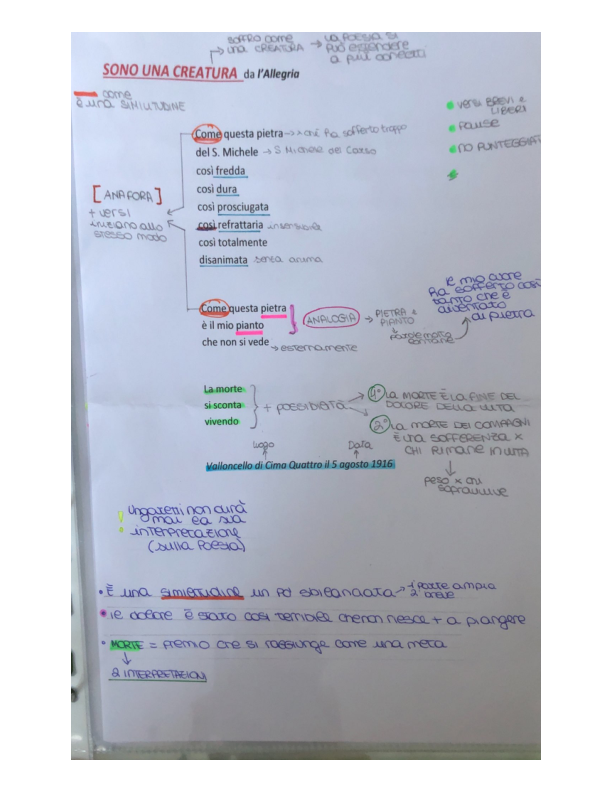 SOFFRO COME
UNA CREATURA → LA POESIA SI
PUÒ ESTENDERE
A PIÙ CONTESTI
SONO UNA CREATURA da l'Allegria
come
È UNA SIMILITUDINE
VERSI BREVI E
LIBERI
PAUSE
NO PUNTEGGIAT
Come questa pietra → xché ha sofferto troppo
del S. Michele → S Michele del Carso
così fredda
così dura
così prosciugata
così refrattaria insensibile
così totalmente
disanimata senza anima
[ANAFORA]
+ versi
iniziano allo
stesso modo
Come questa pietra
è il mio pianto
che non si vede → esternamente
ANALOGIA → PIETRA e
PIANTO
parole molto
lontane
il mio cuore
ha sofferto così
tanto che è
diventato
di pietra
La morte
si sconta
vivendo
+ POSSIBILITÀ
1° LA MORTE È LA FINE DEL
DOLORE DELLA VITA
2° LA MORTE DEI COMPAGNI
È UNA SOFFERENZA X
CHI RIMANE IN VITA
peso x chi
sopravvive
Luogo Data
Valloncello di Cima Quattro il 5 agosto 1916
! Ungaretti non curà
mai la sua
interpretazione
(sulla poesia)
• È una similitudine un pò sbilanciata → 1 parte ampia
2 breve
• il dolore è stato così terribile che non riesce + a piangere
• MORTE = premio che si raggiunge come una meta
2 INTERPRETAZIONI